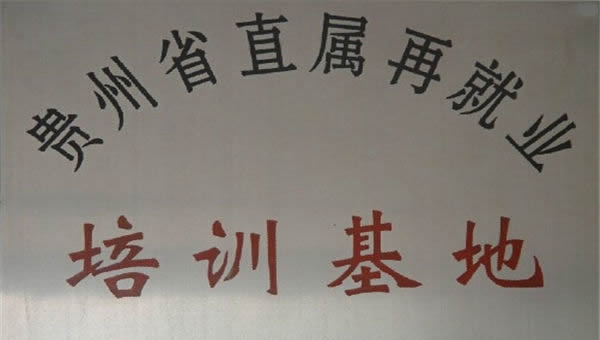 贵州省直属再就业
培训基地